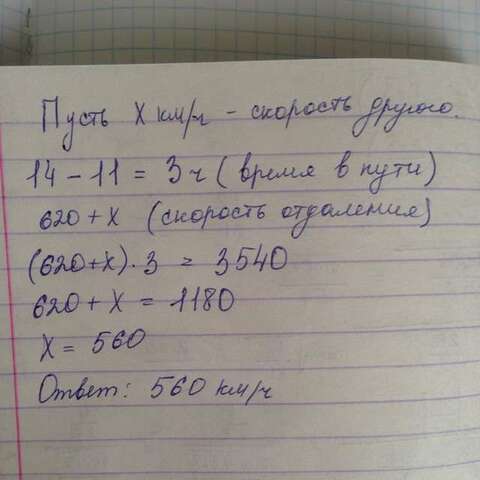 Пусть X км/ч - скорость другого.
14 - 11 = 3 ч (время в пути)
620 + X (скорость отдаления)
(620+X)·3 = 3540
620 + X = 1180
X = 560
Ответ: 560 км/ч